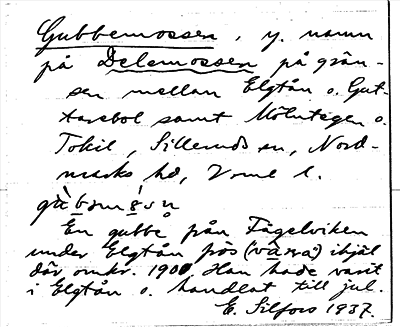 Gubbemossen, y. namn
på Delemossen på grän-
sen mellan Elgtån o. Gut-
tarebol samt Mölntegen o.
Tokil, Silleruds sn, Nord-
marks hd, Vrml l.
En gubbe från Fågelviken
under Elgtån frös ihjäl
där omkr. 1900. Han hade varit
i Elgtån o. handlat till jul.
E. Silfors 1937.